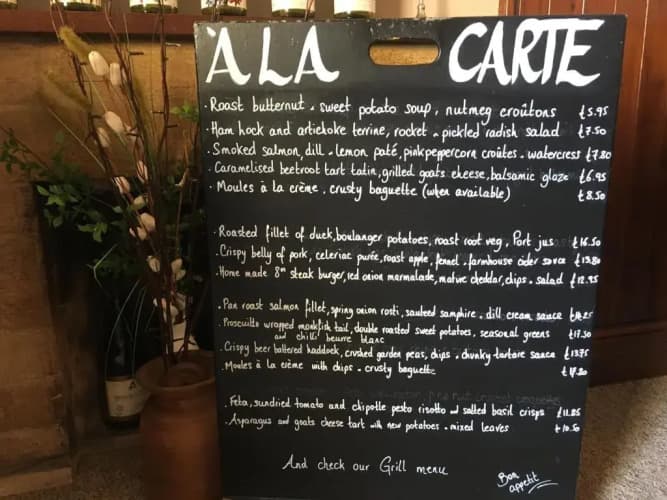 À LA CARTE
· Roast butternut & sweet potato soup, nutmeg croûtons £5.95
· Ham hock and artichoke terrine, rocket & pickled radish salad £7.50
· Smoked salmon, dill & lemon paté, pink peppercorn croûtes & watercress £7.80
· Caramelised beetroot tart tatin, grilled goats cheese, balsamic glaze £6.95
· Moules à la crème, crusty baguette (when available) £8.50
· Roasted fillet of duck, boulanger potatoes, roast root veg, Port jus £16.50
· Crispy belly of pork, celeriac purée, roast apple, fennel & farmhouse cider sauce £15.80
· Home made 8oz steak burger, red onion marmalade, mature cheddar, chips & salad £12.95
· Pan roast salmon fillet, spring onion rosti, sauteed samphire & dill cream sauce
· Proscuitto wrapped monkfish tail, double roasted sweet potatoes, seasonal greens £17.50
and chilli beurre blanc
· Crispy beer battered haddock, crushed garden peas, chips & chunky tartare sauce £13.75
· Moules à la crème with chips & crusty baguette
· Feta, sundried tomato and chipotle pesto risotto and salted basil crisps £11.25
· Asparagus and goats cheese tart with new potatoes & mixed leaves £10.50
And check our Grill menu
Bon
appetit